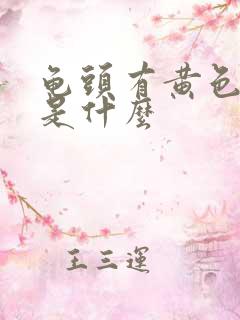 龟頭有黄色
是什麼
王三運